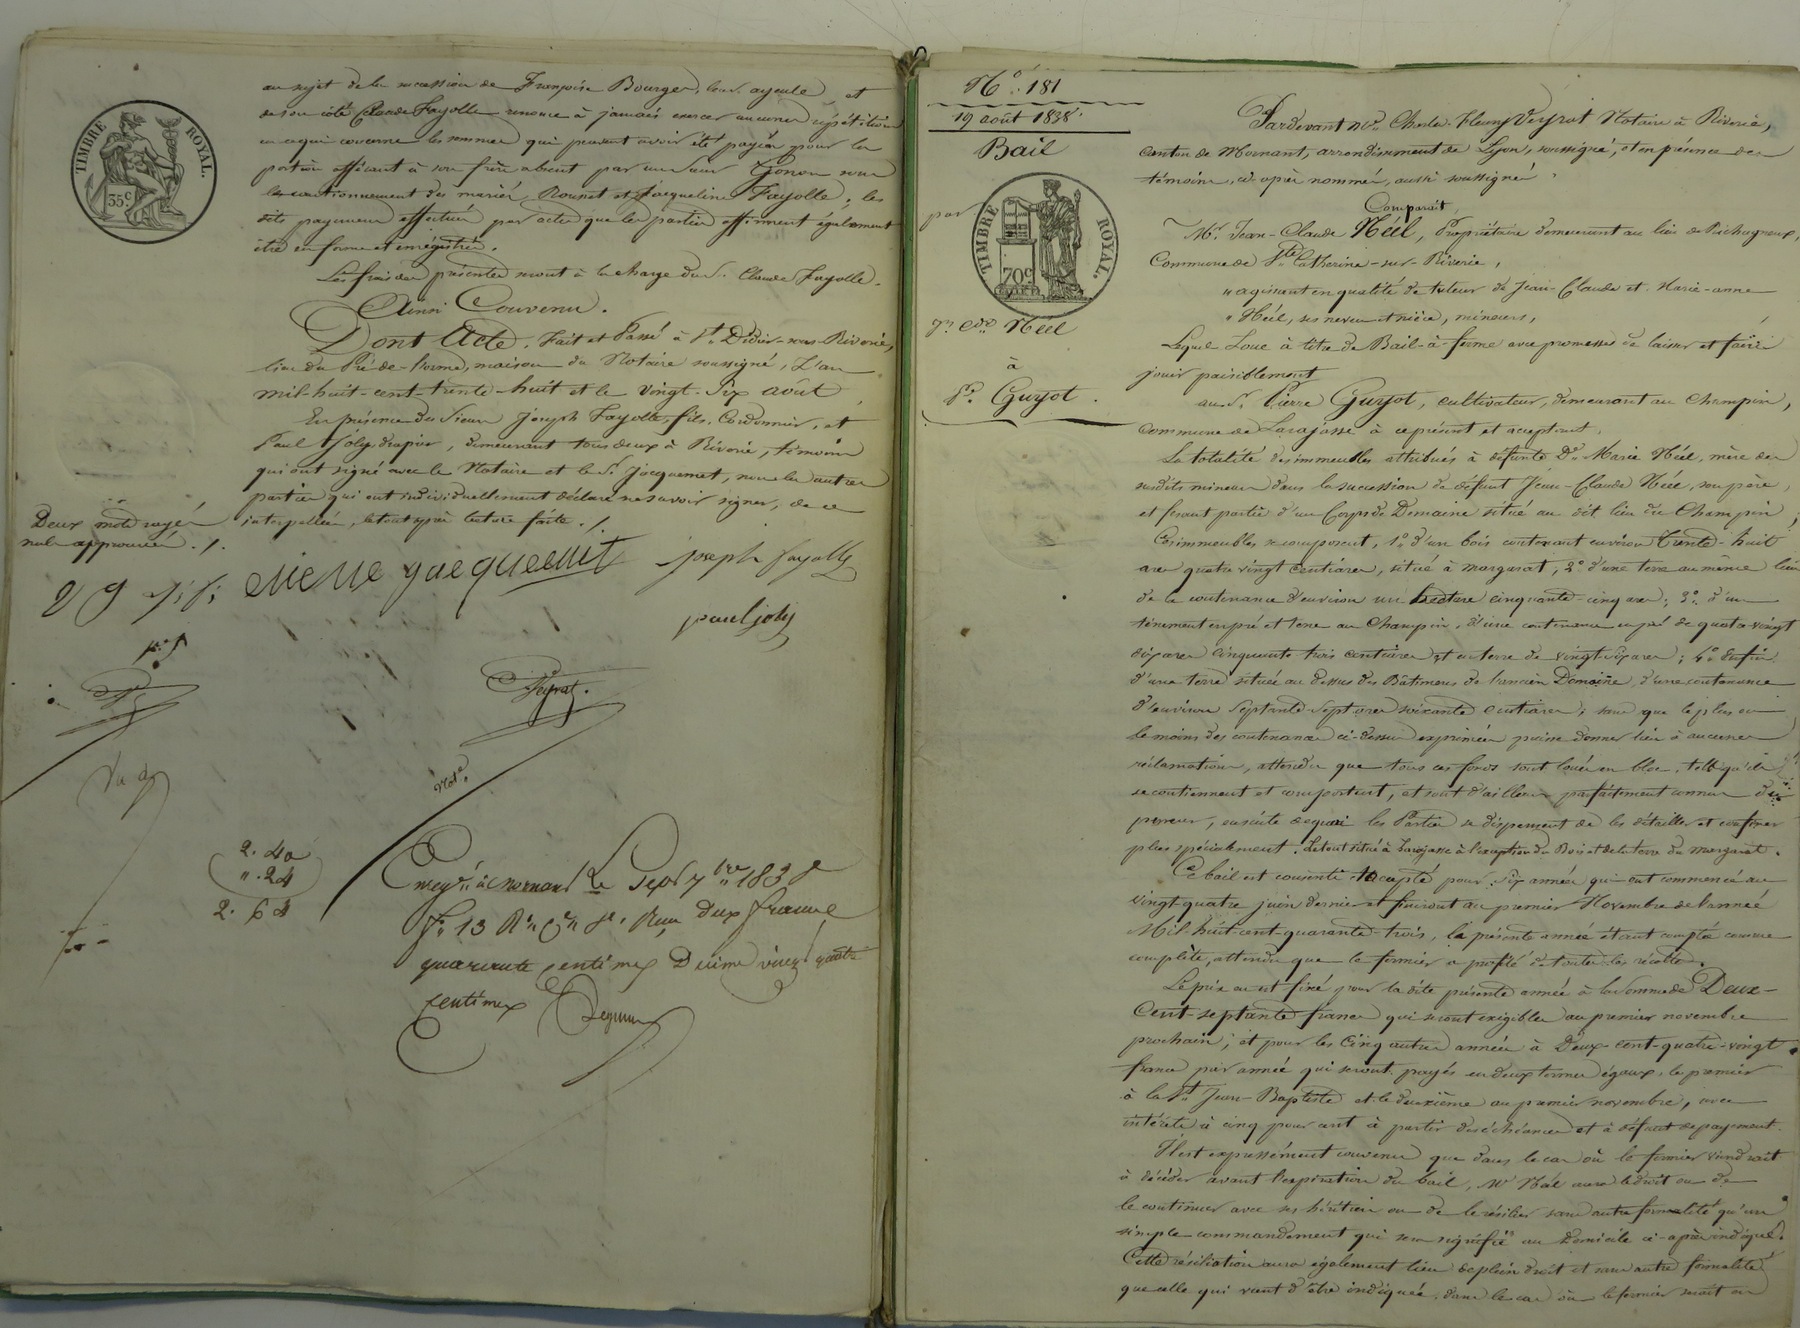 au sujet de la succession de Françoise Bourger, leur ayeule, et
de son côté Claude Fayolle renonce à jamais exercer aucunes répétitions
en ce qui concerne les sommes qui peuvent avoir été payées pour la
portion afférant à son frère absent par un sieur Gonon sous
le cautionnement des mariés Rounat et Jacqueline Fayolle; les
dits payemens effectués par actes que les parties affirment également
être en forme et enregistrés.
Les frais des présentes seront à la charge du Sr. Claude Fayolle.
Ainsi Convenu.
Dont Acte. Fait et Passé à St. Didier-sous-Riverie,
lieu du Pré-de-l'orme, maison du Notaire soussigné, L'an
mil-huit-cent-trente-huit et le vingt-six août
En présence du Sieur Joseph Fayolle, fils, Cordonnier, et
Paul Joly, drapier, demeurant tous deux à Riverie, témoins
qui ont signé avec le Notaire et le Sr. Jacquemet, non les autres
parties qui ont individuellement déclaré ne savoir signer, de ce
interpellées, le tout après lecture faite. /.
Deux mots rayés
nuls approuvés. /.
joseph fayolle
paul joly
Veyrat.
Not.
Vu
2. 40
". 24
2. 64
Enregé. à Mornant Le Sept 7bre 1838
fo. 13 Ro. Reçu deux francs
quarante centimes Décime vingt quatre
centimes
TIMBRE ROYAL.
35c
No. 181
19 août 1838.
Bail
par
TIMBRE ROYAL.
70c
Jn. Cde. Néel
à
Pre. Guyot.
Pardevant Me. Charles-Fleury Veyrat Notaire à Riverie,
canton de Mornant, arrondissement de Lyon, soussigné, et en présence des
témoins, ci-après nommés, aussi soussignés
Comparaît
Mr. Jean-Claude Néel, Propriétaire demeurant au lieu de Richagneux,
Commune de Ste. Catherine-sur-Riverie,
" agissant en qualité de tuteur de Jean-Claude et Marie-anne
" Néel, ses neveu et nièce, mineurs,
Lequel Loue à titre de Bail-à-ferme avec promesses de laisser et faire
jouir paisiblement
au Sr. Pierre Guyot, cultivateur, demeurant au Champin,
Commune de Larajasse à ce présent et acceptant,
La totalité des immeubles attribués à défunte De. Marie Néel, mère des
susdits mineurs dans la succession de défunt Jean-Claude Néel, son père,
et faisant partie d'un Corps de Domaine situé au dit lieu du Champin;
Ces immeubles se composent, 1o. d'un bois contenant environ Trente-huit
ares quatre vingt centiares, situé à margarat, 2o. d'une terre au même lieu
de la contenance d'environ un hectare cinquante-cinq ares; 3o. d'un
ténement en pré et terre au Champin, d'une contenance en pré de quatre-vingt
dix ares cinquante trois centiares et en terre de vingt six ares; 4o. enfin
d'une terre située au dessus des Bâtimens de l'ancien Domaine, d'une contenance
d'environ Septante-Sept ares soixante centiares; sans que le plus ou
le moins des contenances ci-dessus exprimées puisse donner lieu à aucunes
réclamations, attendu que tous ces fonds sont loués en bloc, tels qu'ils
se contiennent et comportent, et sont d'ailleurs parfaitement connus des
preneurs, ensuite de quoi les Parties se dispensent de les détailler et confiner
plus spécialement. Le tout situé à Larajasse à l'exception du Bois et de la terre du margarat.
Ce bail est consenti et accepté pour six années qui ont commencé au
vingt quatre juin dernier et finiront au premier Novembre de l'année
Mil-huit-cent-quarante-trois, la présente année étant comptée comme
complète, attendu que le fermier a profité de toutes les récoltes.
Le prix en est fixé pour la dite présente année à la somme de Deux-
Cent-septante francs qui seront exigibles au premier novembre
prochain, et pour les Cinq autres années à Deux-cent-quatre-vingt
francs par année qui seront payés en deux termes égaux, le premier
à la St. Jean-Baptiste et le deuxième au premier novembre, avec
intérêts à cinq pour cent à partir des échéances et à défaut de payement.
Il est expressément convenu que dans le cas où le fermier viendrait
à décéder avant l'expiration du bail, Mr Néel aura le droit ou de
le continuer avec ses héritiers ou de le résilier sans autre formalité qu'un
simple commandement qui sera signifié au Domicile ci-après indiqué.
Cette résiliation aura également lieu de plein droit et sans autre formalité
que celle qui vient d'être indiquée, dans le cas où le fermier serait en